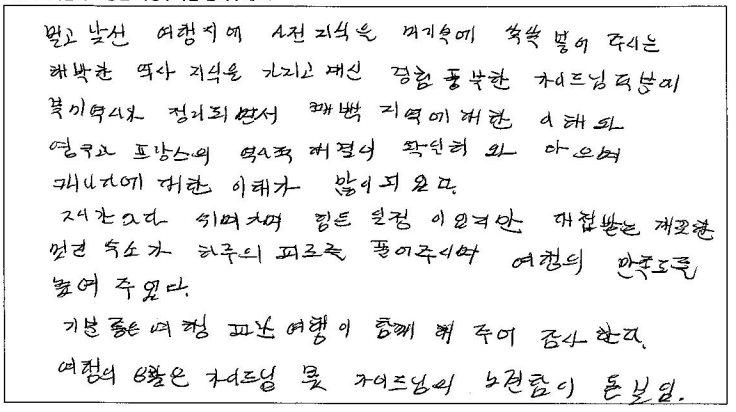 멀고 낯선 여행지에 사전 지식을 머리속에 쏙쏙 넣어 주시는
해박한 역사 지식을 가지고 계신 경험 풍부한 가이드님 덕분에
북미역사와 정리되면서 퀘벡 지역에 대한 이해와
영국과 프랑스의 역사적 대결이 확실히 와 다으며
캐나다에 대한 이해가 많이 되었다.
시간마다 쉬며가며 힘든 일정 이었지만 대접받는
멋진 숙소가 하루의 피로를 풀어주시며 여행의 만족도를
높여 주었다.
기분 좋은 여행 파란 여행이 함께 해 주어 감사한다.
여행의 8활은 가이드님 몫 가이드님의 노련함이 돋보임.